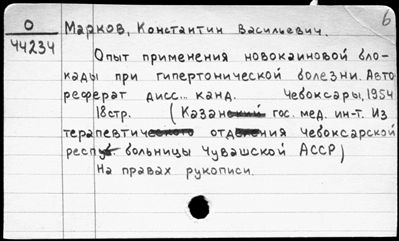 6
О
44234
Марков, Константин Васильевич.
Опыт применения новокаиновой бло-
кады при гипертонической болезни. Авто
реферат дисс... канд. Чебоксары, 1954
18 стр. (Казанский гос. мед. ин-т. Из
терапевтического отделения Чебоксарской
респуб. больницы Чувашской АССР)
На правах рукописи.